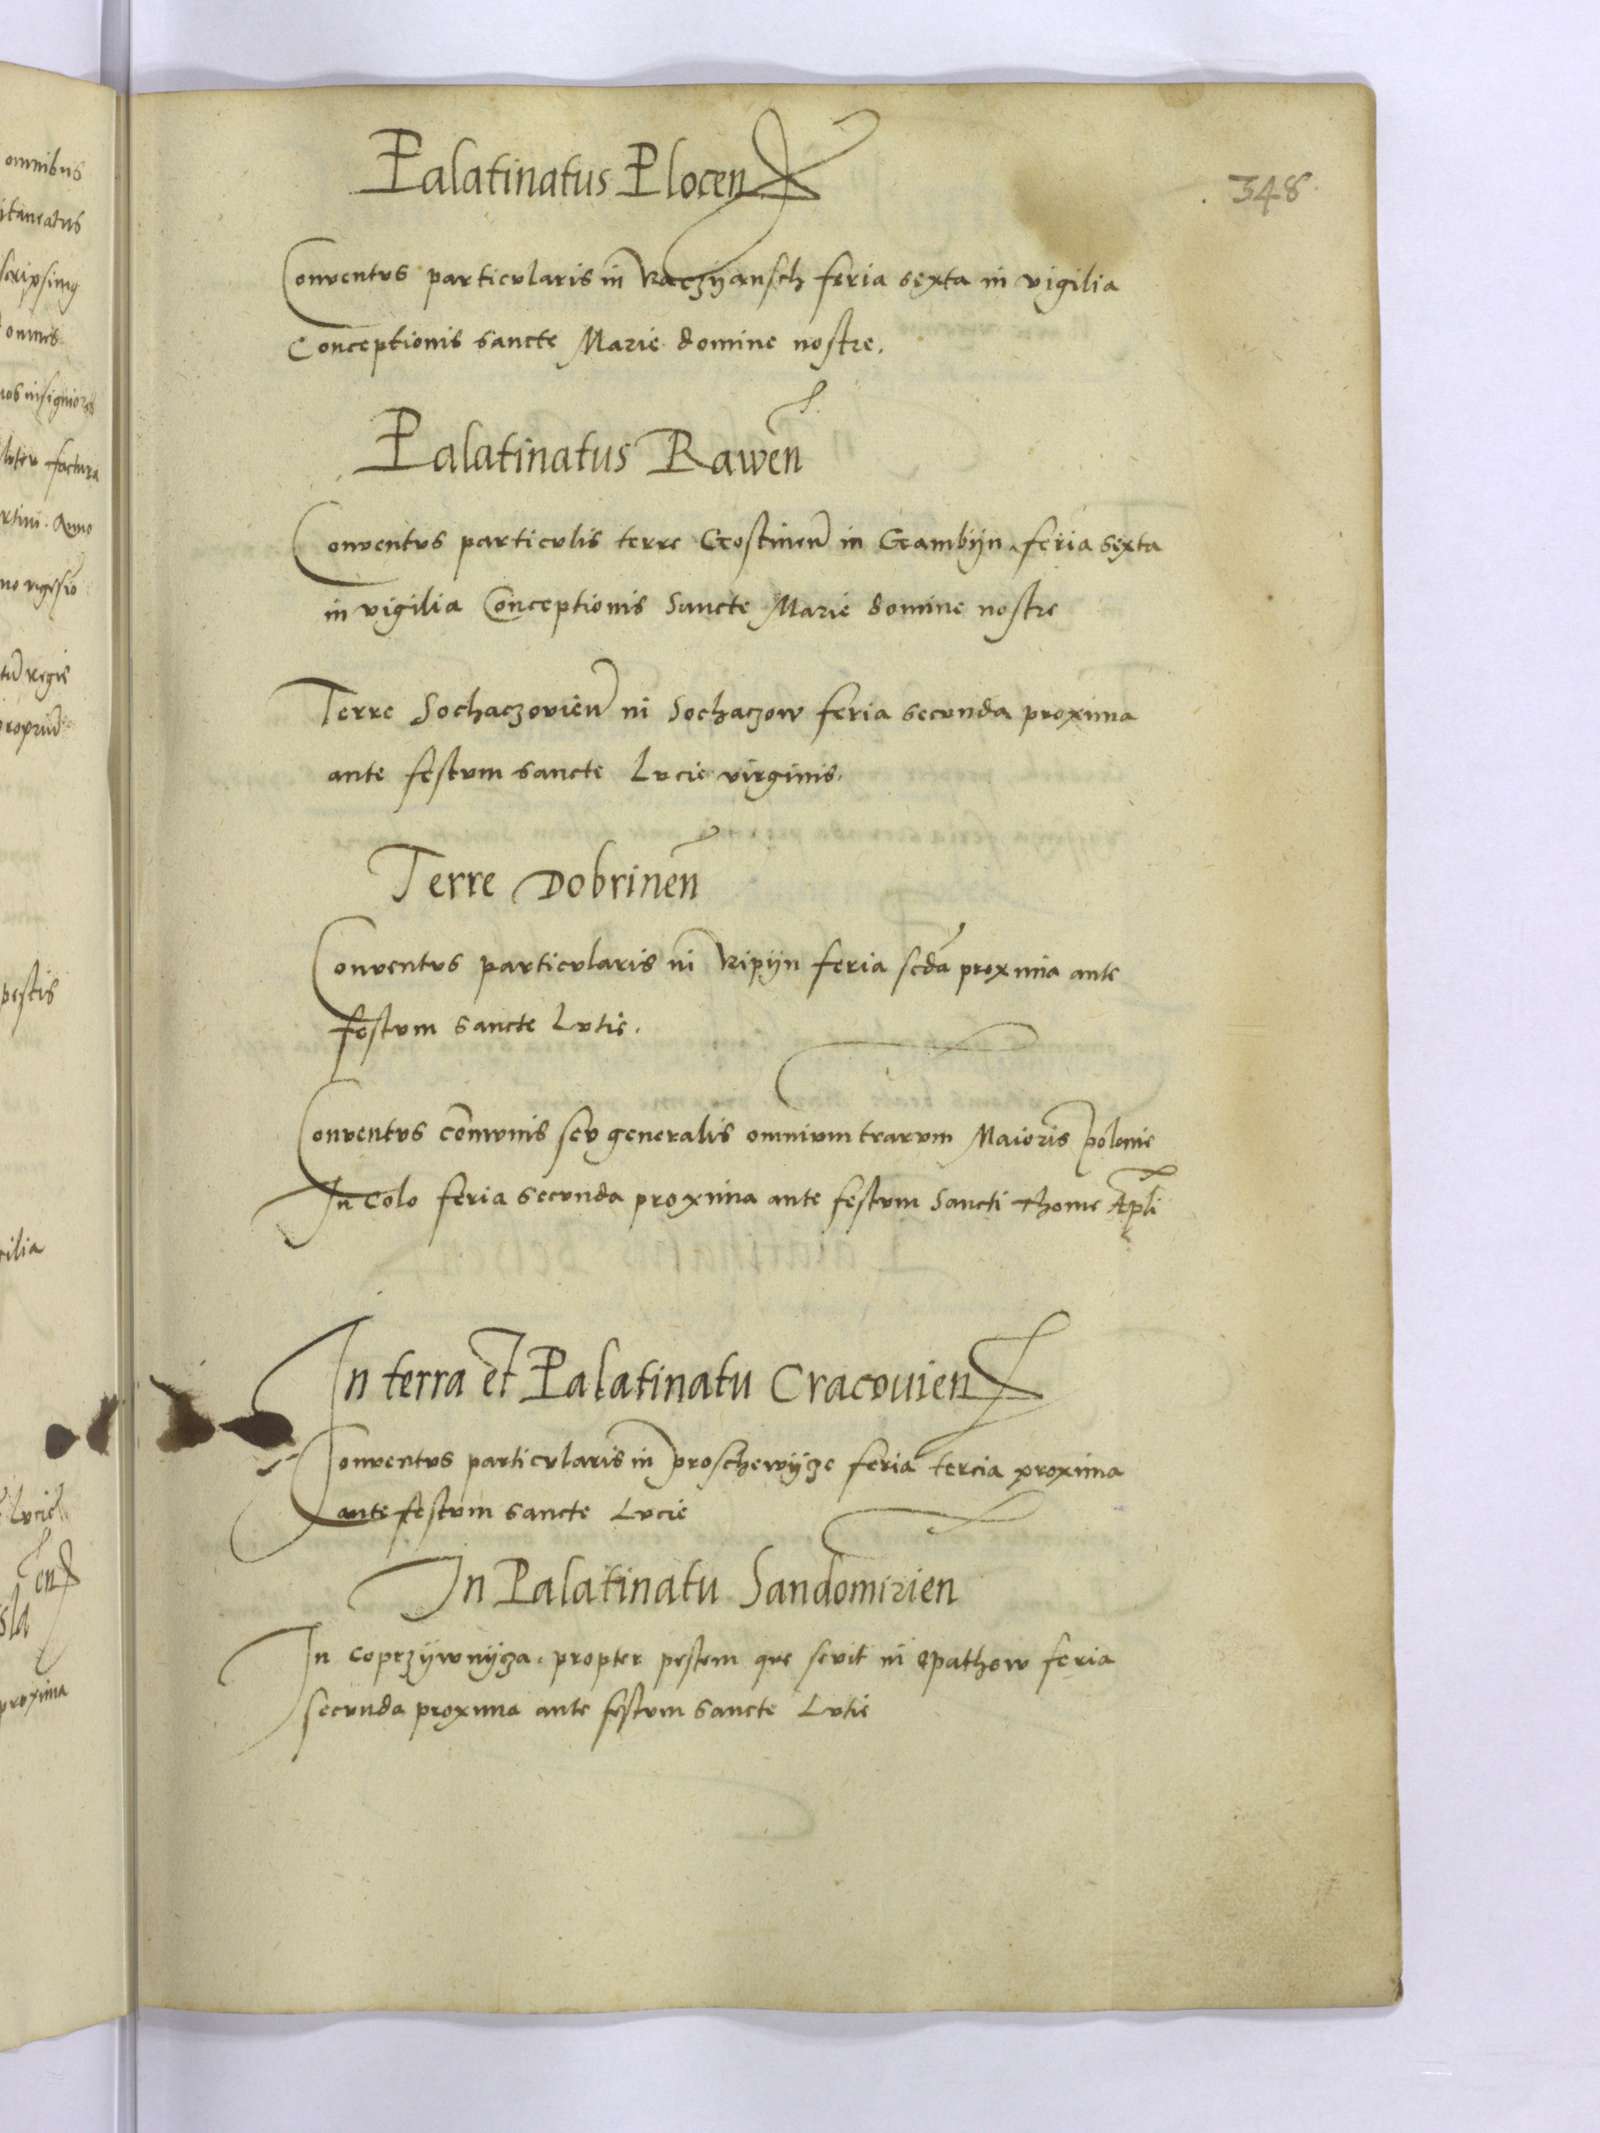 348
Palatinatus Plocen
Conventus particularis in Raczyansch feria sexta in vigilia
Conceptionis sancte Marie domine nostre.
Palatinatus Rawen
Conventus particulis terre Gostinen in Gambyn feria sexta
in vigilia Conceptionis Sancte Marie domine nostre
Terre Sochaczovien in Sochaczow feria secunda proxima
ante festum sancte Lucie virginis.
Terre Dobrinen
Conventus particularis in Ripyn feria scda proxima ante
festum sancte Lutie.
Conventus comunis seu generalis omnium trarum Maioris polonie
In Colo feria secunda proxima ante festum Sancti Thome Apli
In terra et Palatinatu Cracovien
Conventus particularis in proschewyze feria tercia proxima
ante festum sancte Lucie
In Palatinatu Sandomirien
In Coprzywnyza propter pestem que sevit in Opathow feria
secunda proxima ante festum sancte Lutie